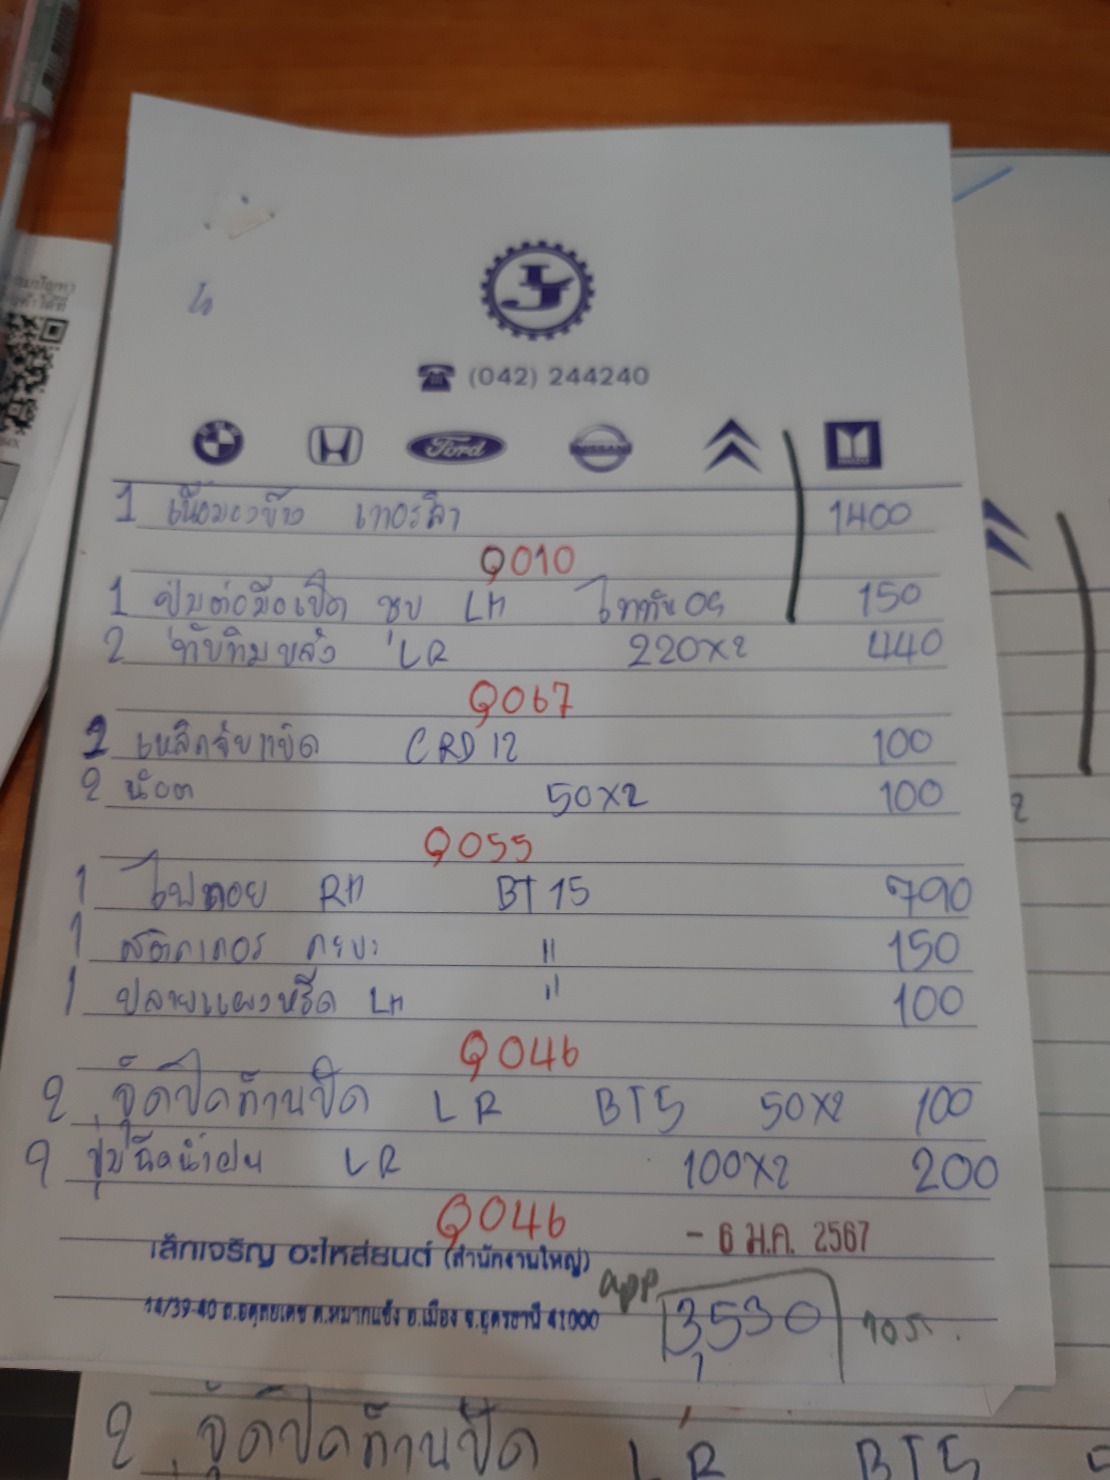 (042) 244240
Ford NISSAN
1 เนื้อมองข้าง เทอรล่า 1400
Q010
1 ปุ่มต่อมือเปิด ชุบ LH ไททัน 05 150
2 ทับทิมหลัง LR 220x2 440
Q067
2 เหล็กจับแป๊ด CRD 12 100
2 น๊อต 50x2 100
Q055
1 ไฟถอย RH BT 15 790
1 สติกเกอร์ กระบะ " 150
1 ปลายแผงหรีด LH " 100
Q046
2 จุ๊ดปิดก้านปัด LR BT5 50x2 100
2 ปุ่มฉีดน้ำฝน LR 100x2 200
Q046
- 6 ม.ค. 2567
เล็กเจริญ อะไหล่ยนต์ (สำนักงานใหญ่)
app
14/39-40 ถ.อดุลยเดช ต.หมากแข้ง อ.เมือง จ.อุดรธานี 41000
3,530
2 จุ๊ดปิดก้านปัด LR BT5